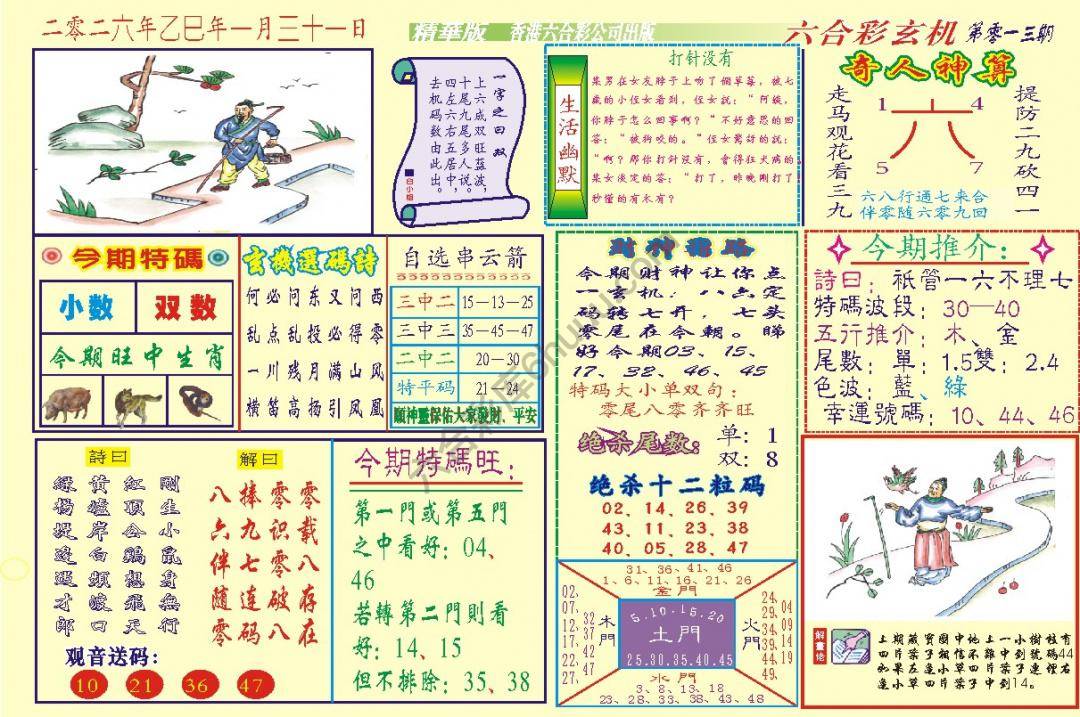 二零二六年乙巳年一月三十一日
精華版 香港六合彩公司出版
六合彩玄机 第零一三期
一字之曰：双
上六成双波，
十尾双旺蓝说。
四左九五多中
去机码数由此出。
白小姐
生活幽默
打针没有
某男在女友脖子上吻了個草莓，被七
歲的小侄女看到，侄女說：“阿姨，
你脖子怎么回事啊？”不好意思的回
答：“被狗咬的。”侄女驚訝的說：
“啊？那你打针没有，會得狂犬病的。
某女淡定的答：“打了，昨晚剛打了
秒懂的有木有？
奇人神算
走马观花看三九
提防二九砍四一
1 4
六
5 7
六八行通七来合
伴零随六零九回
今期特碼
小数 双数
今期旺中生肖
玄機選碼詩
何必问东又问西
乱点乱投必得零
一川残月满山风
横笛高扬引凤凰
自选串云箭
三中二 15—13—25
三中三 35—45—47
二中二 20—30
特平码 21—24
願神靈保佑大家發財、平安
財神指路
今期财神让你点
一玄机：八点定
码转七开，七头
零尾在今朝。睇
好今期03、15、
17、32、46、45
特码大小单双句：
零尾八零齐齐旺
绝杀尾数：
单：1
双：8
绝杀十二粒码
02、14、26、39
43、11、23、38
40、05、28、47
今期推介：
詩曰：祇管一六不理七
特碼波段：30—40
五行推介：木、金
尾數：單：1.5雙：2.4
色波：藍、綠
幸運號碼：10、44、46
詩曰
剛生小鼠身無行
紅頂公鷄想飛天
黃爐岸白頻煥口
緑楊堤边遇才郎
解曰
零零捧八
载识九六
八零七伴
存破连随
在八码零
观音送码：
10 21 36 47
今期特碼旺：
第一門或第五門
之中看好：04、
46
若轉第二門則看
好：14、15
但不排除：35、38
31、36、41、46
1、6、11、16、21、26
金門
02、07、12、17、22、27、
32、37、42、47
木門
5.10.15.20
土門
25.30.35.40.45
火門
24、29、34、39、44、49
04、09、14、19
水門
3、8、13、18
23、28、33、38、43、48
解畫佬
上期藏寶圖中地上一小樹枝有
四片葉子相信不難中到號碼44
如果左邊小草四片葉子連理右
邊小草四片葉子中到14。